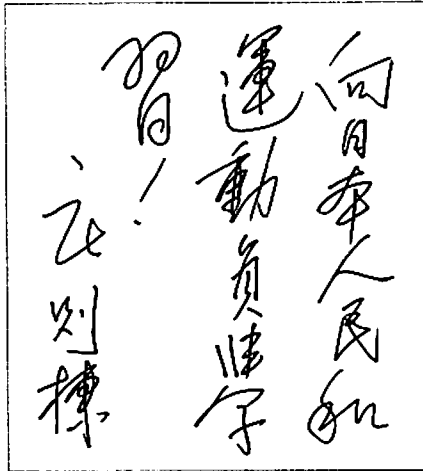 向日本人民和
運動員們学
習!
庄则棟